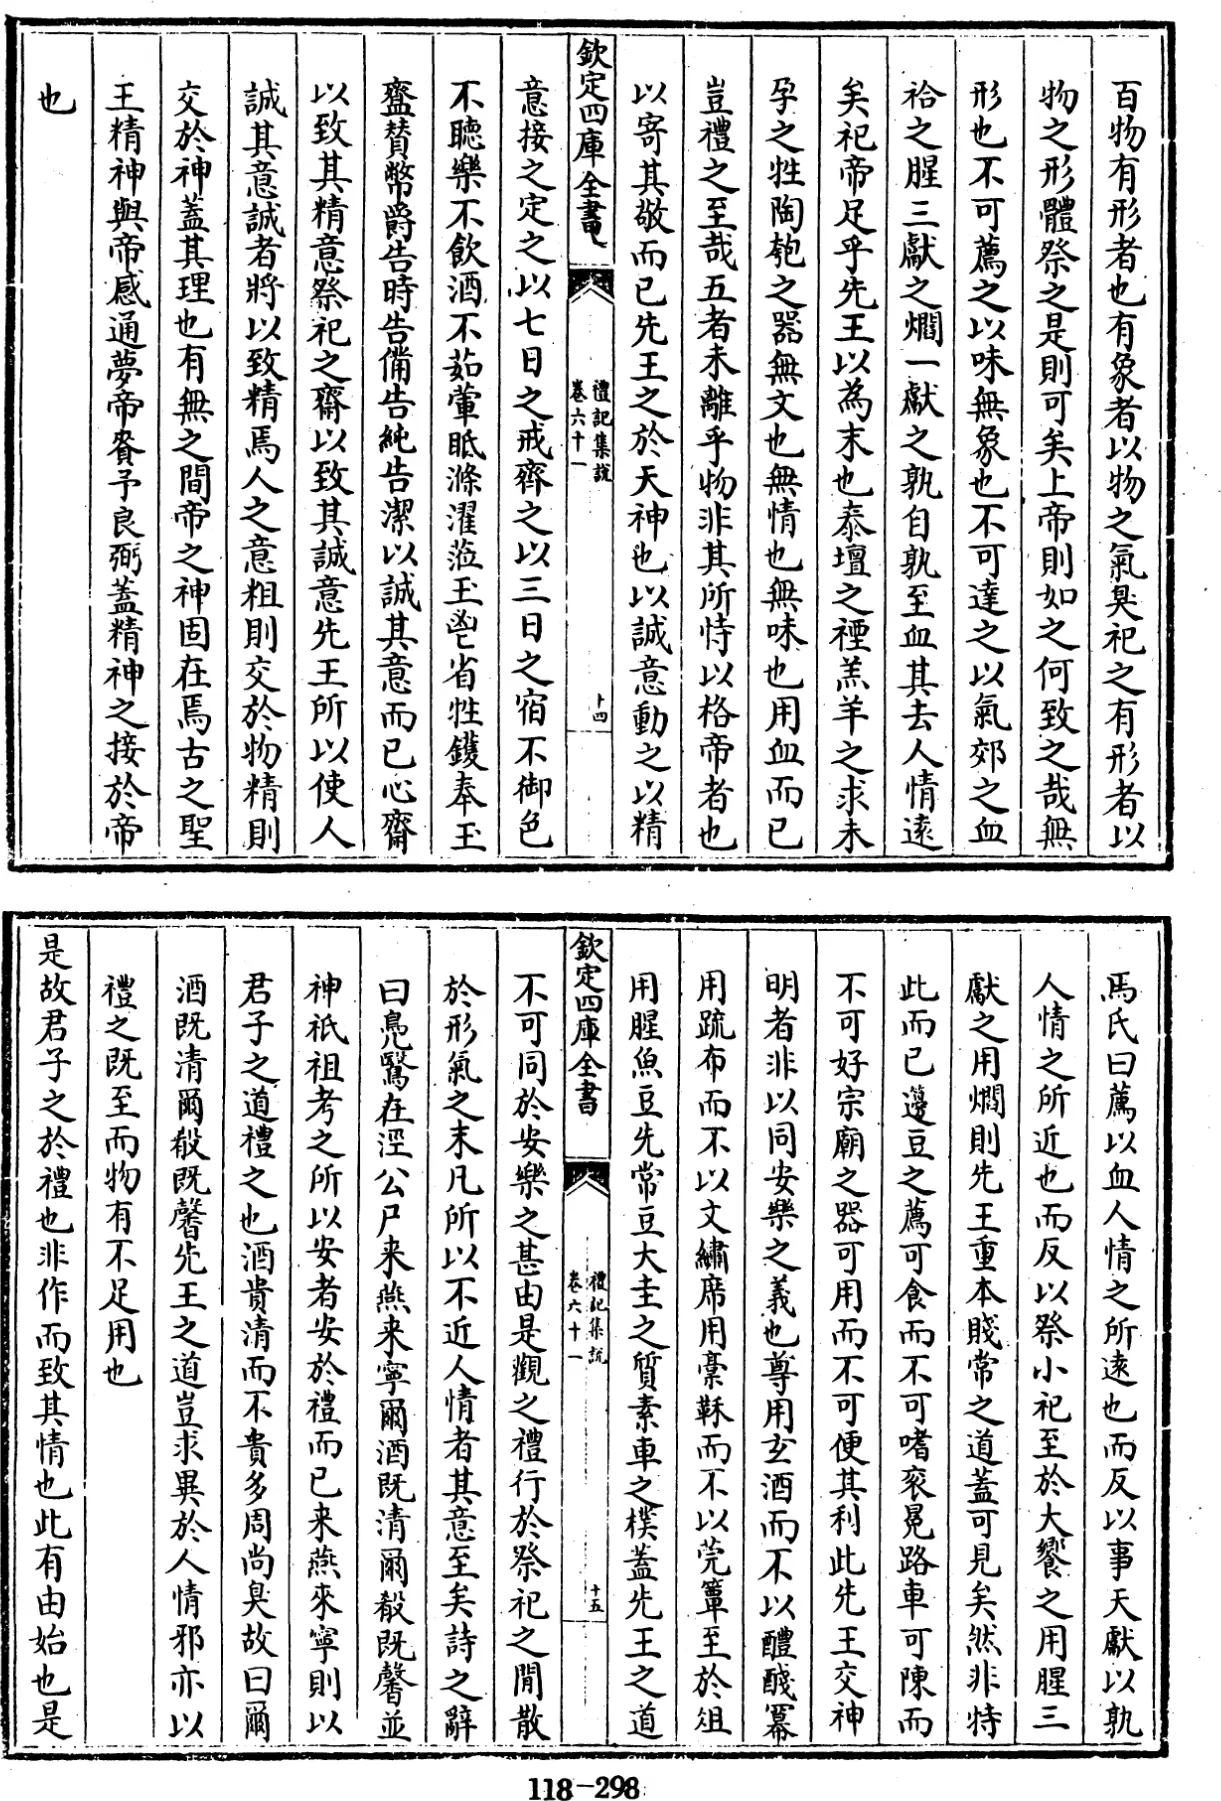 百物有形者也有象者以物之氣臭祀之有形者以
物之形體祭之是則可矣上帝則如之何致之哉無
形也不可薦之以味無象也不可達之以氣郊之血
祫之腥三獻之爓一獻之孰自孰至血其去人情遠
矣祀帝足乎先王以為末也泰壇之禋羔羊之求未
孕之牲陶匏之器無文也無情也無味也用血而已
豈禮之至哉五者未離乎物非其所恃以格帝者也
以寄其敬而已先王之於天神也以誠意動之以精
欽定四庫全書
禮記集說
卷六十一
十四
意接之定之以七日之戒齊之以三日之宿不御色
不聽樂不飲酒不茹葷眡滌濯蒞玉鬯省牲鑊奉玉
齍賛幣爵告時告備告純告潔以誠其意而已心齋
以致其精意祭祀之齋以致其誠意先王所以使人
誠其意誠者將以致精焉人之意粗則交於物精則
交於神蓋其理也有無之間帝之神固在焉古之聖
王精神與帝感通夢帝賚予良弼蓋精神之接於帝
也
馬氏曰薦以血人情之所遠也而反以事天獻以孰
人情之所近也而反以祭小祀至於大饗之用腥三
獻之用爓則先王重本賤常之道蓋可見矣然非特
此而已籩豆之薦可食而不可嗜衮冕路車可陳而
不可好宗廟之器可用而不可便其利此先王交神
明者非以同安樂之義也尊用玄酒而不以醴醆冪
用疏布而不以文繡席用藁鞂而不以莞簟至於俎
用腥魚豆先常豆大圭之質素車之樸蓋先王之道
欽定四庫全書
禮記集說
卷六十一
十五
不可同於安樂之甚由是觀之禮行於祭祀之間散
於形氣之末凡所以不近人情者其意至矣詩之辭
曰鳧鷖在涇公尸来燕来寧爾酒既清爾殽既馨並
神祇祖考之所以安者安於禮而已来燕來寧則以
君子之道禮之也酒貴清而不貴多周尚臭故曰爾
酒既清爾殽既馨先王之道豈求異於人情邪亦以
禮之既至而物有不足用也
是故君子之於禮也非作而致其情也此有由始也是
118-298